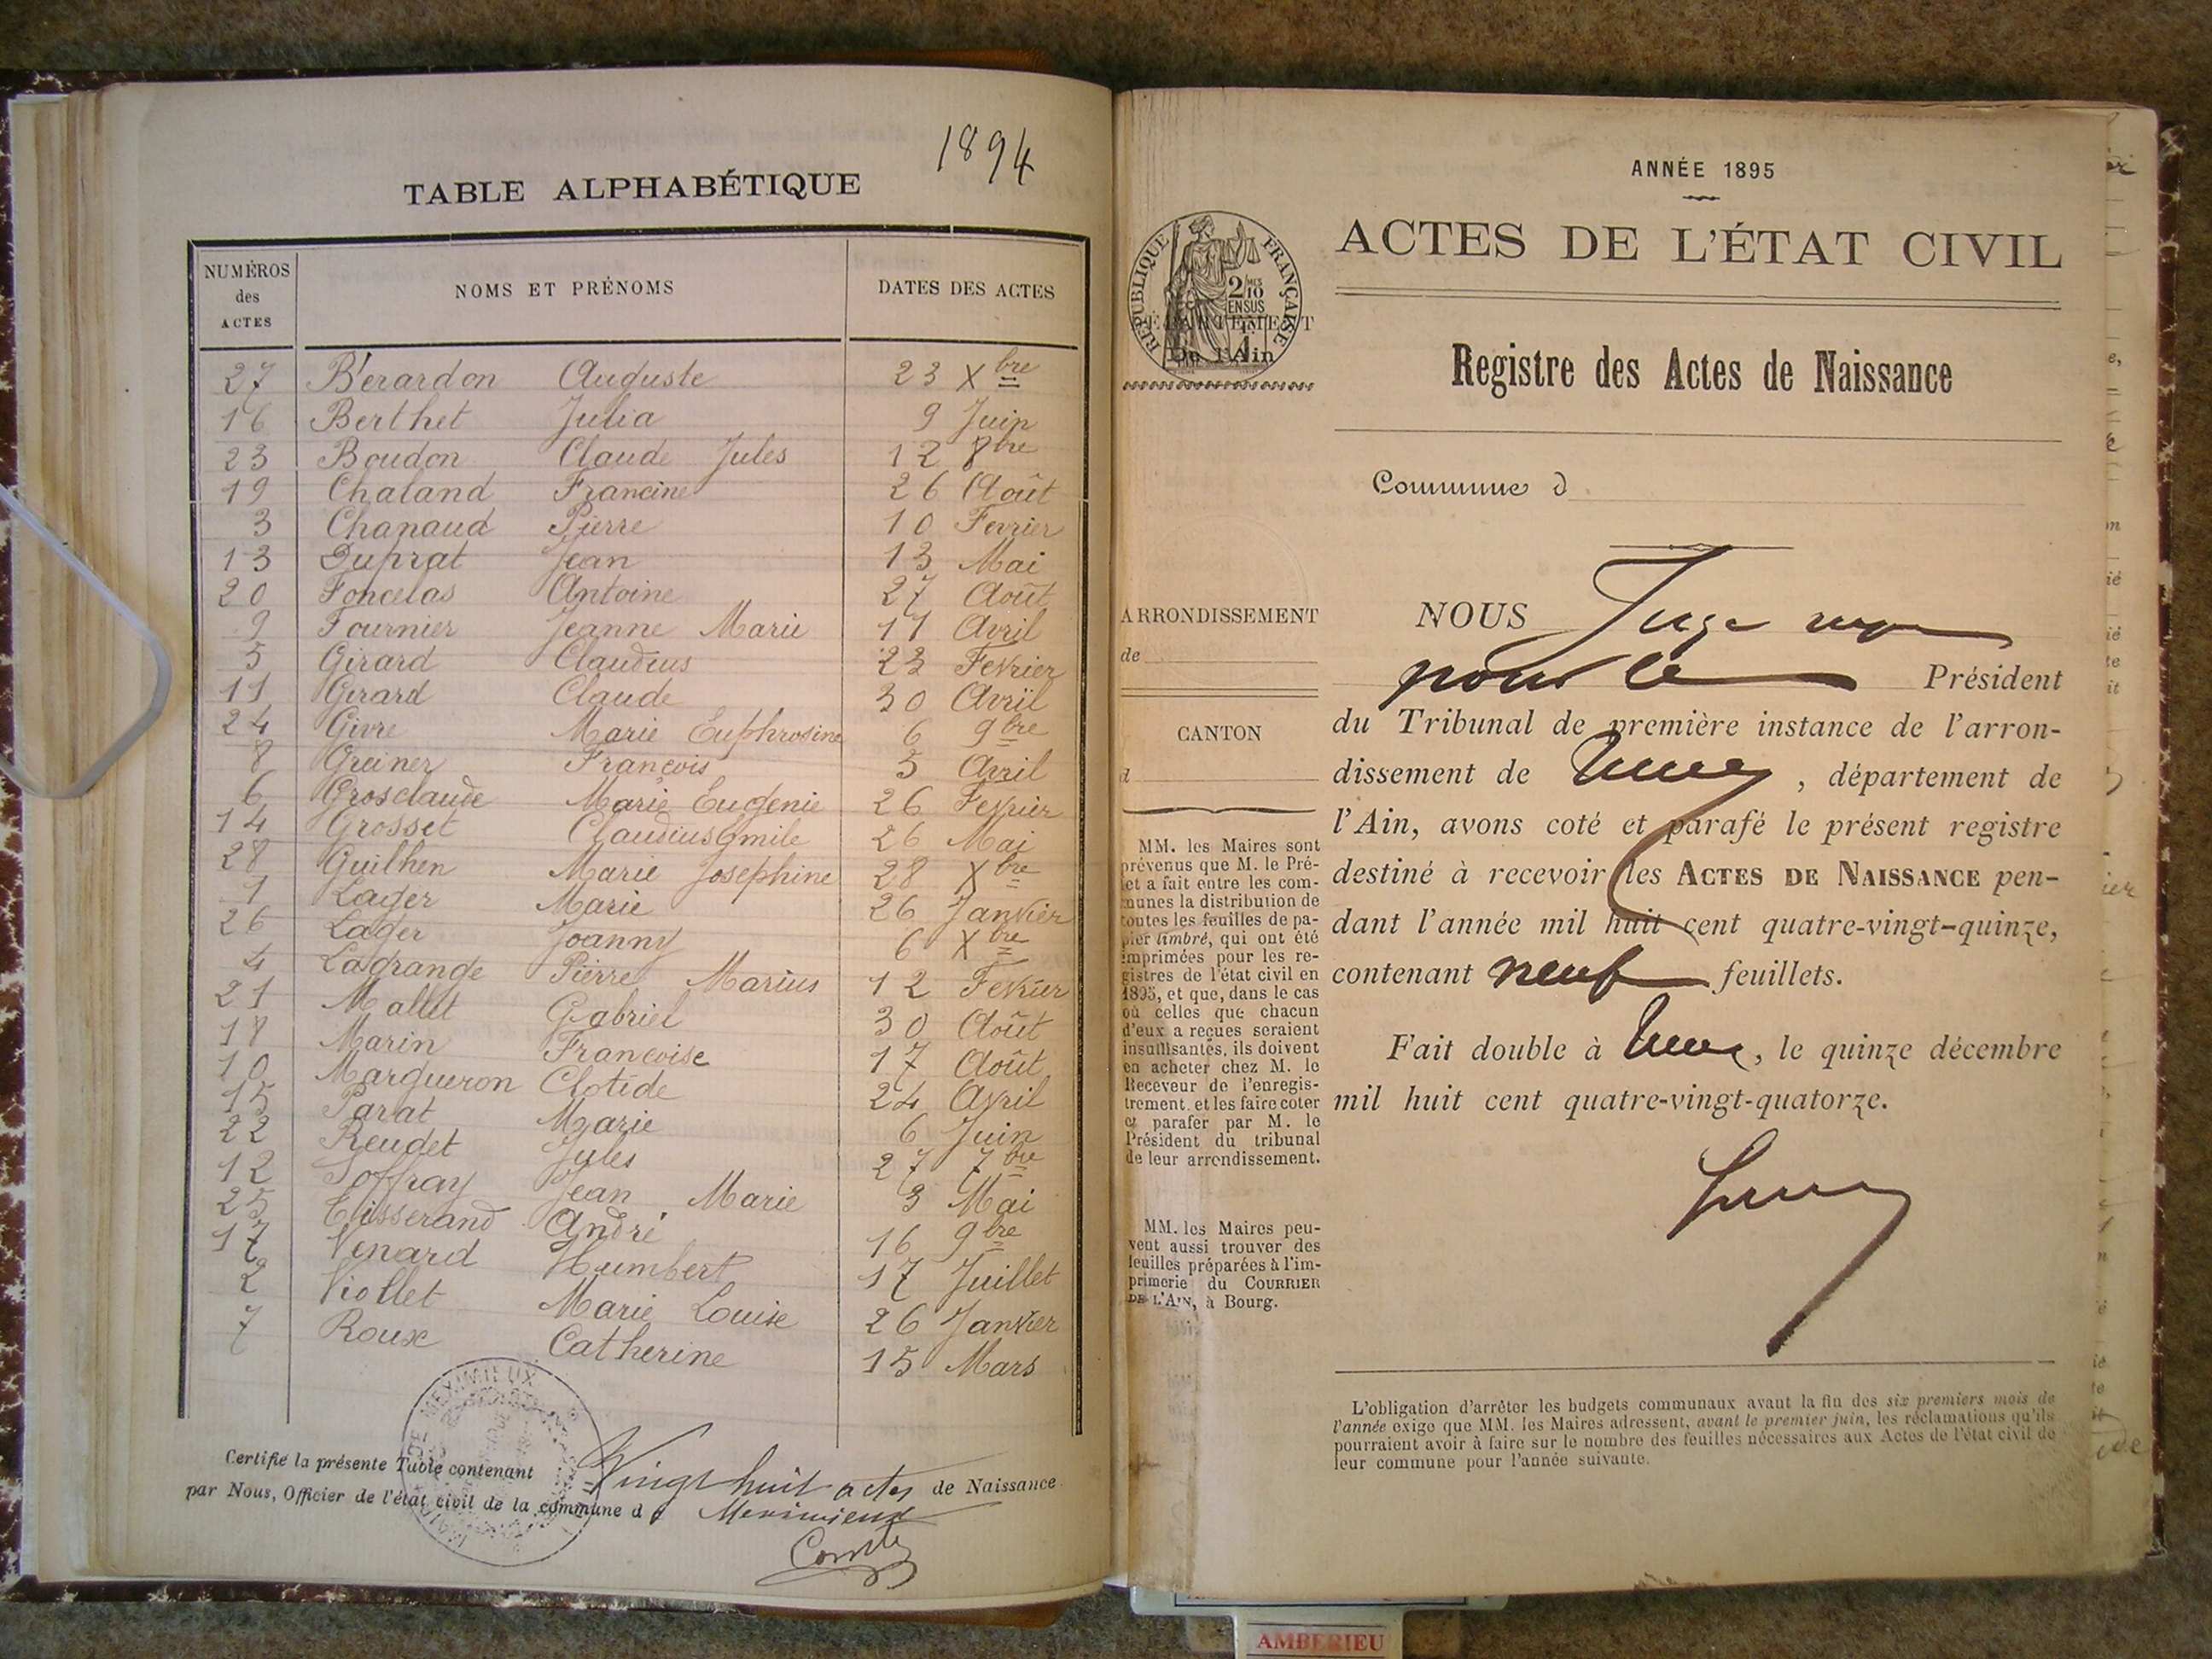 1894
TABLE ALPHABÉTIQUE
NUMÉROS des ACTES NOMS ET PRÉNOMS DATES DES ACTES
27 Bérardon Auguste 23 Xbre
16 Berthet Julia 9 Juin
23 Boudon Claude Jules 12 8bre
19 Chaland Francine 26 Août
3 Chanaud Pierre 10 Fevrier
13 Duprat Jean 13 Mai
20 Foncelas Antoine 27 Août
9 Fournier Jeanne Marie 17 Avril
5 Girard Claudius 23 Fevrier
11 Girard Claude 30 Avril
24 Givre Marie Euphrosine 6 9bre
8 Greiner François 5 Avril
6 Grosclaude Marie Eugenie 26 Fevrier
14 Grosset Claudius Emile 26 Mai
28 Guilhen Marie Josephine 28 Xbre
1 Lager Marie 26 Janvier
26 Lager Joanny 6 Xbre
4 Lagrange Pierre Marius 12 Fevrier
21 Mallet Gabriel 30 Août
18 Marin Françoise 17 Août
10 Margueron Clotide 24 Avril
15 Parat Marie 6 Juin
22 Reudet Jules 27 7bre
12 Soffray Jean Marie 3 Mai
25 Tisserand André 16 9bre
17 Venard Humbert 17 Juillet
2 Viollet Marie Louise 26 Janvier
7 Roux Catherine 15 Mars
MEXIMIEUX
Certifié la présente Table contenant Vingt huit actes de Naissance
par Nous, Officier de l'état civil de la commune de Meximieux
ANNÉE 1895
ACTES DE L'ÉTAT CIVIL
RÉPUBLIQUE FRANÇAISE
2/10 EN SUS
DÉPARTEMENT
De l'Ain
Registre des Actes de Naissance
Commune d
ARRONDISSEMENT
de
CANTON
d
MM. les Maires sont
prévenus que M. le Pré-
fet a fait entre les com-
munes la distribution de
toutes les feuilles de pa-
pier timbré, qui ont été
imprimées pour les re-
gistres de l'état civil en
1895, et que, dans le cas
où celles que chacun
d'eux a reçues seraient
insuffisantes, ils doivent
en acheter chez M. le
Receveur de l'enregis-
trement, et les faire coter
et parafer par M. le
Président du tribunal
de leur arrondissement.
MM. les Maires peu-
vent aussi trouver des
feuilles préparées à l'im-
primerie du COURRIER
DE L'AIN, à Bourg.
NOUS Juge
pour le Président
du Tribunal de première instance de l'arron-
dissement de , département de
l'Ain, avons coté et parafé le présent registre
destiné à recevoir les ACTES DE NAISSANCE pen-
dant l'année mil huit cent quatre-vingt-quinze,
contenant neuf feuillets.
Fait double à , le quinze décembre
mil huit cent quatre-vingt-quatorze.
L'obligation d'arrêter les budgets communaux avant la fin des six premiers mois de
l'année exige que MM. les Maires adressent, avant le premier juin, les réclamations qu'ils
pourraient avoir à faire sur le nombre des feuilles nécessaires aux Actes de l'état civil de
leur commune pour l'année suivante.
AMBERIEU